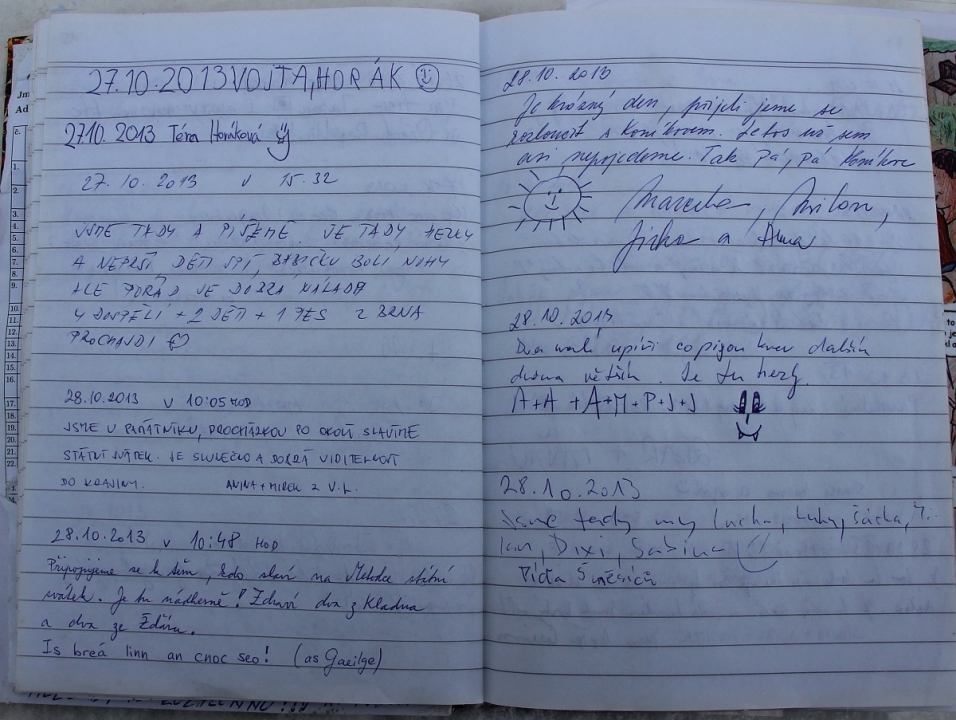 27.10.2013 VOJTA, HORÁK
27.10. 2013 Téra Horáková
27.10.2013 V 15.32
JSME TADY A PÍŠEME. JE TADY HEZKY
A NEPRŠÍ DĚTI SPÍ, BABIČKU BOLÍ NOHY
ALE POŘÁD JE DOBRÁ NÁLADA
4 DOSPĚLÍ + 2 DĚTI + 1 PES Z BRNA
28.10.2013 V 10:05 HOD
JSME U PAMÁTNÍKU, PROCHÁZKOU PO OKOLÍ SLAVÍME
STÁTNÍ SVÁTEK. JE SLUNEČNO A DOBRÁ VIDITELNOST
DO KRAJINY. ANINA + MIREK Z V.L.
28.10.2013 v 10:48 HOD
Připojujeme se k těm, kdo slaví na Melodce státní
svátek. Je tu nádherně! Zdraví dva z Kladna
a dva ze Žďáru.
Is breá linn an cnoc seo! (as Gaeilge)
28.10. 2013
Je krásný den, přijeli jeme se
rozloučit s Koníkovem. Letos už sem
asi nepojedeme. Tak pá, pá Koníkove
Marcela, Milan,
Jirka a Anna
28.10.2013
Dva malí upíři co pijou krev dalším
dvěma větším. Je tu hezky.
A+A +A+M+P+J+J
28.10.2013
Jsme tady my Lucka, Luky, Šárka,
Ian, Dixi, Sabina
Píďa 5 měsíců